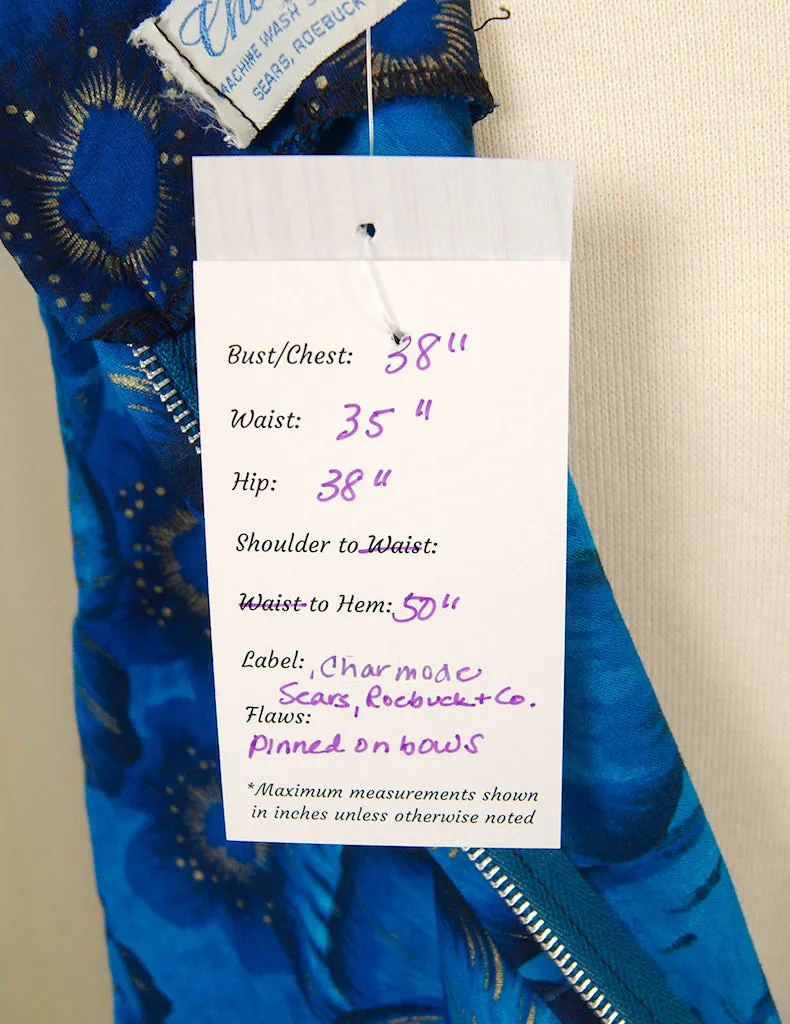 MACHINE WASH
SEARS, ROEBUCK
Bust/Chest: 38"
Waist: 35"
Hip: 38"
Shoulder to Waist:
Waist to Hem: 50"
Label: Charmode
Sears, Roebuck + Co.
Flaws:
pinned on bows
*Maximum measurements shown
in inches unless otherwise noted